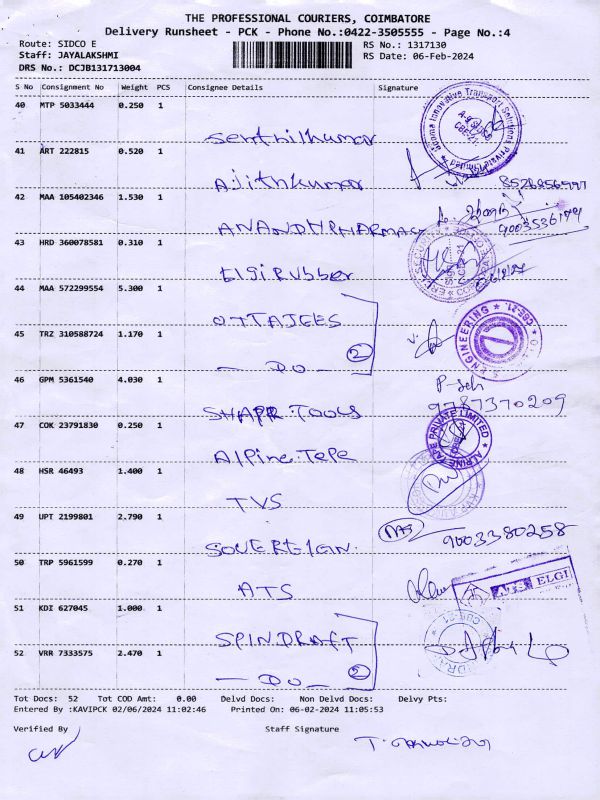 THE PROFESSIONAL COURIERS, COIMBATORE
Delivery Runsheet - PCK - Phone No.:0422-3505555 - Page No.:4
Route: SIDCO E
RS No.: 1317130
Staff: JAYALAKSHMI
RS Date: 06-Feb-2024
DRS No.: DCJB131713004
S No Consignment No Weight PCS Consignee Details Signature
40 MTP 5033444 0.250 1 Senthilkumar
41 ART 222815 0.520 1 Ajithkumar
42 MAA 105402346 1.530 1 ANANDH PHARMAC
9003536199
43 HRD 360078581 0.310 1 Elgi Rubber
44 MAA 572299554 5.300 1 OTTAJEES
45 TRZ 310588724 1.170 1 — DO — 2
ENGINEERING
46 GPM 5361540 4.030 1 SHAPR TOOLS
9787370209
47 COK 23791830 0.250 1 Alpine Tape
ALPINE TAPE PRIVATE LIMITED
48 HSR 46493 1.400 1 TVS
49 UPT 2199801 2.790 1 SOVEREIGN
9003380258
50 TRP 5961599 0.270 1 ATS
ELGI
51 KDI 627045 1.000 1 SPINDRAFT
52 VRR 7333575 2.470 1 — DO — 2
Tot Docs: 52 Tot COD Amt: 0.00 Delvd Docs: Non Delvd Docs: Delvy Pts:
Entered By :KAVIPCK 02/06/2024 11:02:46 Printed On: 06-02-2024 11:05:53
Verified By Staff Signature